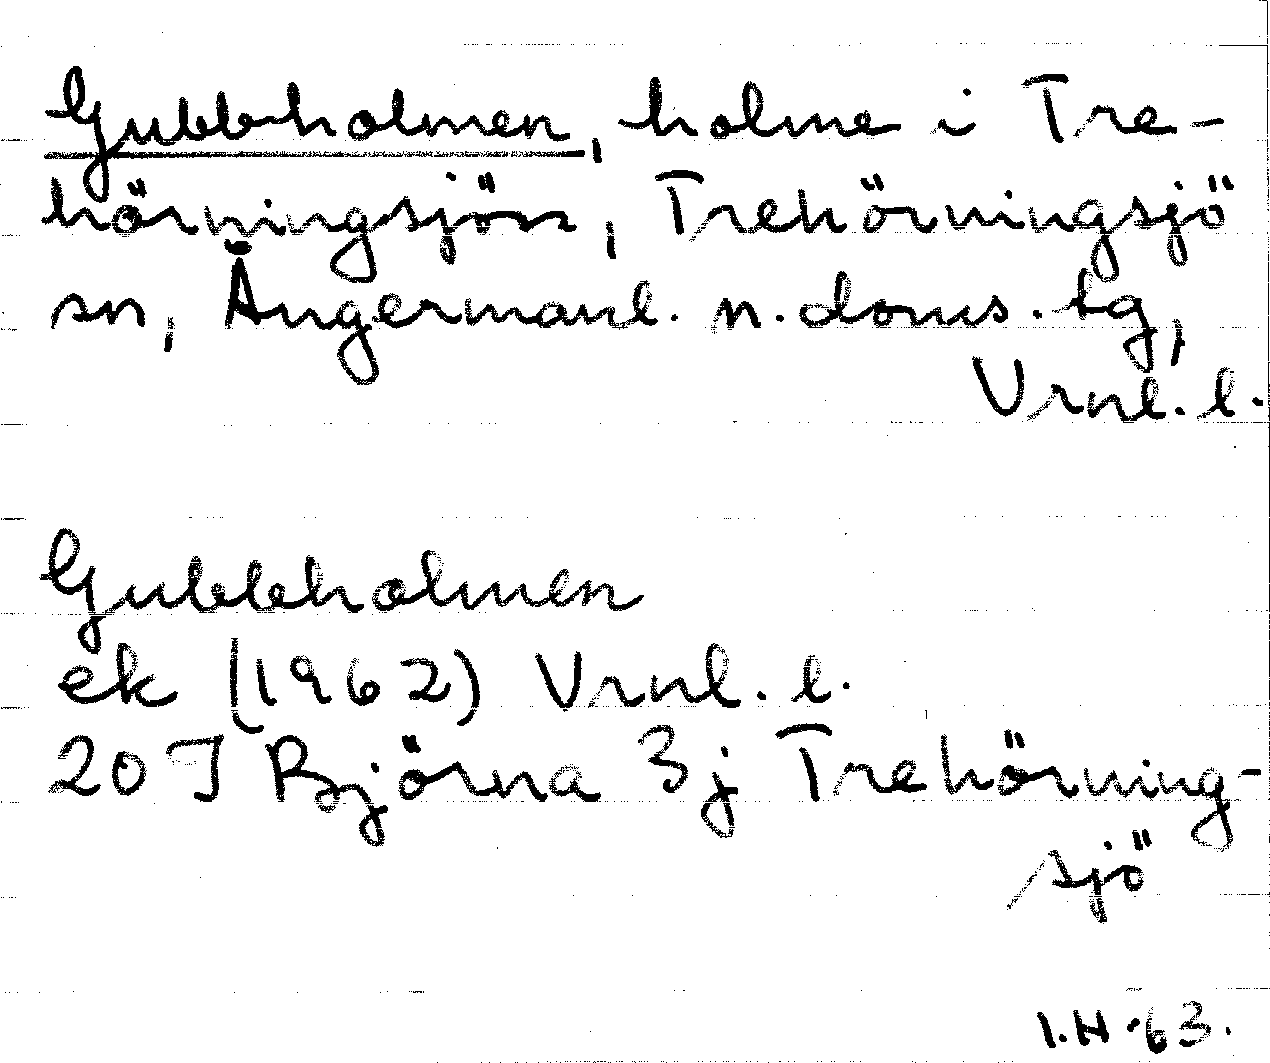 Gubbholmen, holme i Tre-
hörningsjön, Trehörningsjö
sn, Ångermanl. n. doms. tg,
Vrnl. l.
Gubbholmen
ek (1962) Vrnl. l.
20 J Björna 3j Trehörning-
sjö
I.H -63.